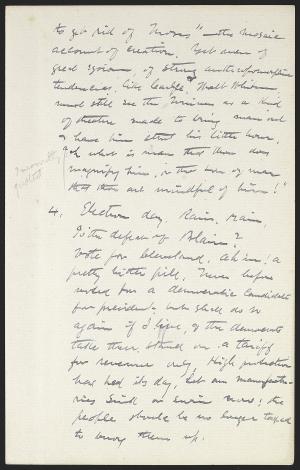 to get rid of "Moses" - the mosaic
account of creation. Yet men of
great egoism, of strong anthropomorphic
tendencies, like Carlyle, Walt Whitman,
must still see the Universe as a kind
of theatre made to bring man out
& have him strut his little hour.
"Oh what is man that thou dost
magnify him, or the son of man
that thou art mindful of him!"
quoted
4. Election day, Rain, Rain.
Is the defeat of Blaine?
Vote for Cleveland. Ah me! a
pretty bitter pill. Never before
voted for a democratic candidate
for president - but shall do so
again if I live, & the democrats
take their stand on a tariff
for revenue only. High protection
has had its day, let our manufacto-
ries sink or swim now; the
people should be no longer taxed
to buoy them up.